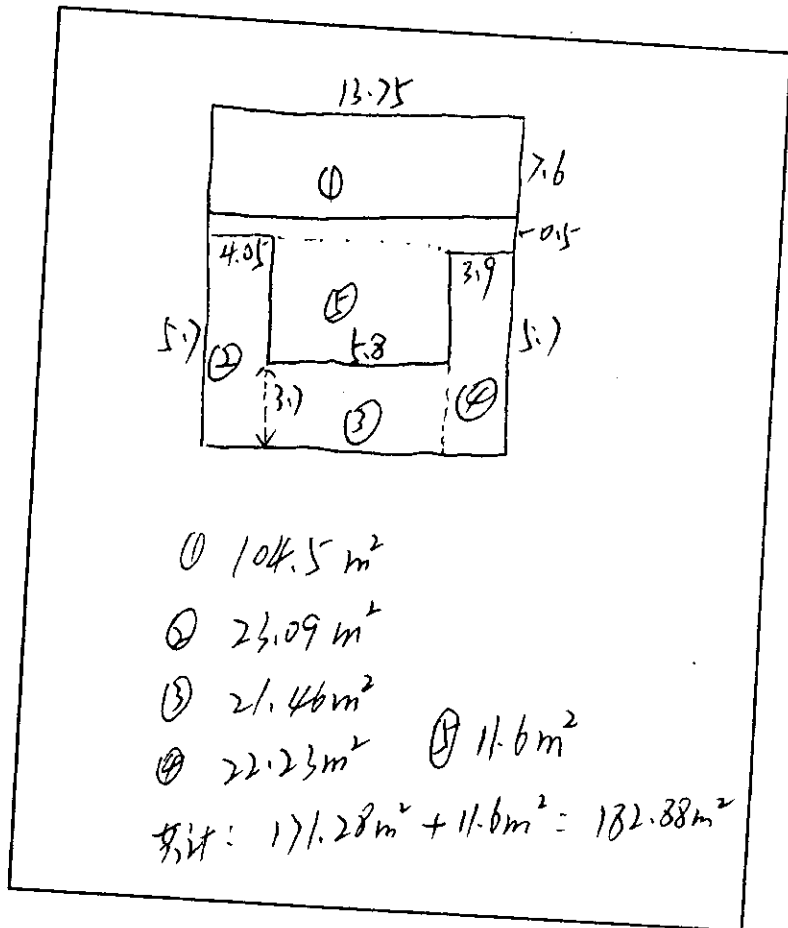 13.75
① 7.6
0.5
4.05 3.9
⑤
5.7 ② 5.8 5.7
3.7 ③ ④
① 104.5 m²
② 23.09 m²
③ 21.46 m²
④ 22.23 m² ⑤ 11.6 m²
共计: 171.28 m² + 11.6 m² = 182.88 m²